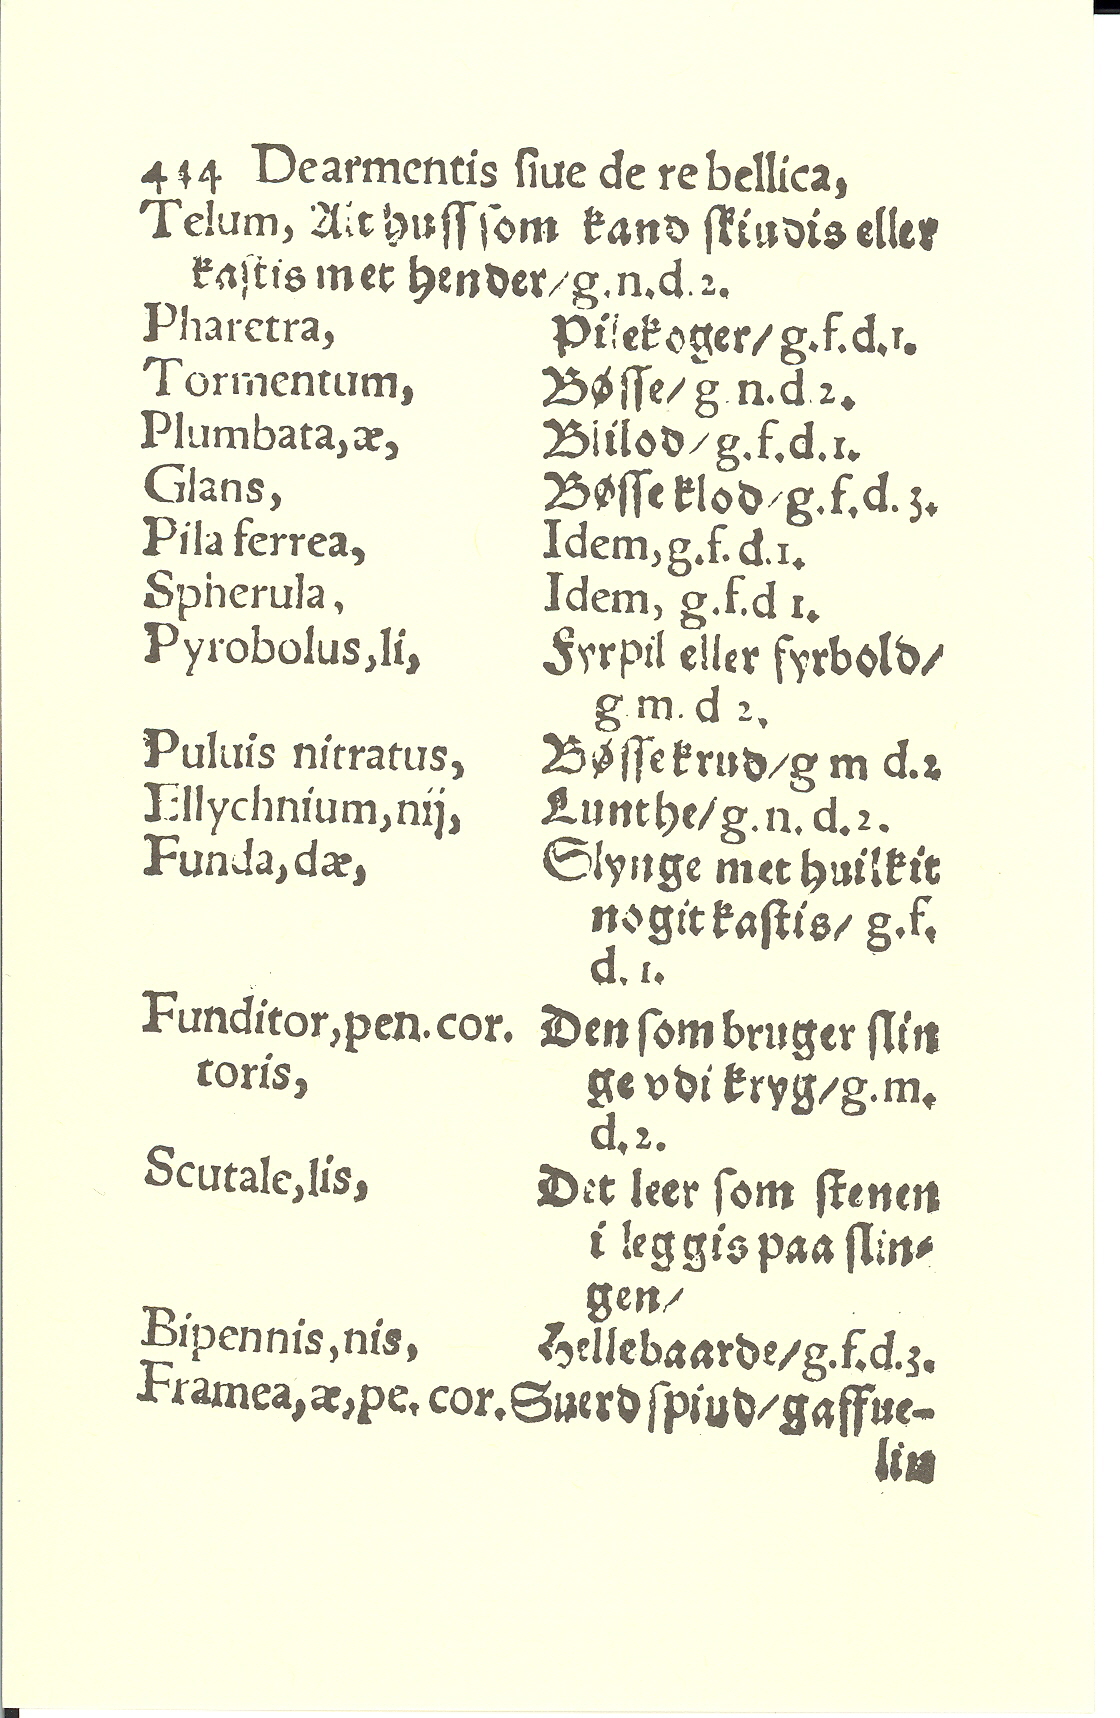 414 De armentis ſiue de re bellica,
Telum, Alt huſſ ſom kand ſkiudis eller
kaſtis met hender/g.n.d.2.
Pharetra, Pilekoger/g.f.d.1.
Tormentum, Bøſſe/g n.d 2.
Plumbata,æ, Bliilod/g.f.d.1.
Glans, Bøſſe klod/g.f.d.3.
Pila ferrea, Idem,g.f.d.1.
Spherula, Idem, g.f.d 1.
Pyrobolus,li, Fyrpil eller fyrbold/
g m. d 2.
Puluis nitratus, Bøſſekrud/g m d.2
Ellychnium,nij, Lunthe/g.n.d.2.
Funda,dæ, Slynge met huilkit
nogit kaſtis/ g.f.
d. 1.
Funditor,pen.cor. Den ſom bruger ſlin
toris, ge vdi kryg/g.m.
d.2.
Scutale,lis, Det leer ſom ſtenen
i leggis paa ſlin-
gen/
Bipennis,nis, Hellebaarde/g.f.d.3.
Framea,æ,pe.cor. Suerd ſpiud/gaffue-
lin